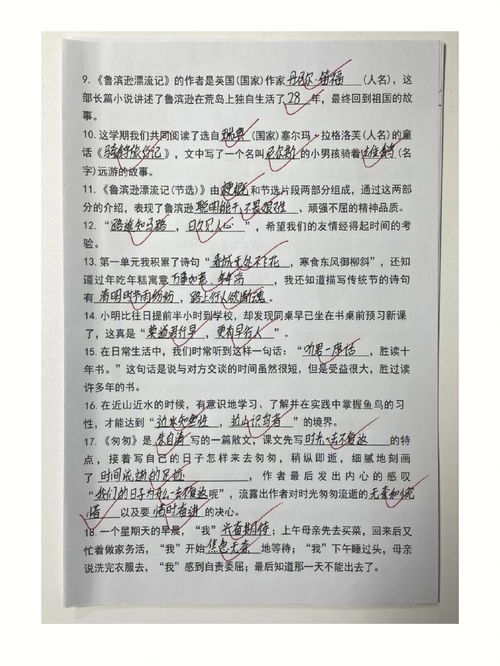 9. 《鲁滨逊漂流记》的作者是英国(国家)作家丹尼尔·笛福(人名)，这
部长篇小说讲述了鲁滨逊在荒岛上独自生活了28年，最终回到祖国的故
事。
10. 这学期我们共同阅读了选自瑞典(国家)塞尔玛·拉格洛芙(人名)的童
话《骑鹅旅行记》，文中写了一个名叫尼尔斯的小男孩骑着雄鹅(名
字)远游的故事。
11. 《鲁滨逊漂流记(节选)》由梗概和节选片段两部分组成，通过这两部
分的介绍，表现了鲁滨逊聪明能干、不畏艰险、顽强不屈的精神品质。
12. “路遥知马力，日久见人心”，希望我们的友情经得起时间的考
验。
13. 第一单元我积累了诗句“春城无处不飞花，寒食东风御柳斜”，还知
道过年吃年糕寓意万事如意、年年高，我还知道描写传统节的诗句
有清明时节雨纷纷，路上行人欲断魂。
14. 小明比往日提前半小时到学校，却发现同桌早已坐在书桌前预习新课
了，这真是“莫道君行早，更有早行人”。
15. 在日常生活中，我们时常听到这样一句话：“听君一席话，胜读十
年书。”这句话是说与对方交谈的时间虽然很短，但是受益很大，胜过读
许多年的书。
16. 在近山近水的时候，有意识地学习、了解并在实践中掌握鱼鸟的习
性，才能达到“近水知鱼性，近山识鸟音”的境界。
17. 《匆匆》是朱自清写的一篇散文，课文先写时光一去不复返的特
点，接着写自己的日子怎样来去匆匆，稍纵即逝，细腻地刻画
了时间流逝的足迹，作者最后发出内心的感叹
“我们的日子为什么一去不复返呢”，流露出作者对时光匆匆流逝的无奈和惋
惜以及要的决心。
18. 一个星期天的早晨，“我”兴奋期待；上午母亲先去买菜，回来后又
忙着做家务活，“我”开始焦急无奈地等待；“我”下午睡过头，母亲
说洗完衣服去，“我”感到自责委屈；最后知道那一天不能出去了。